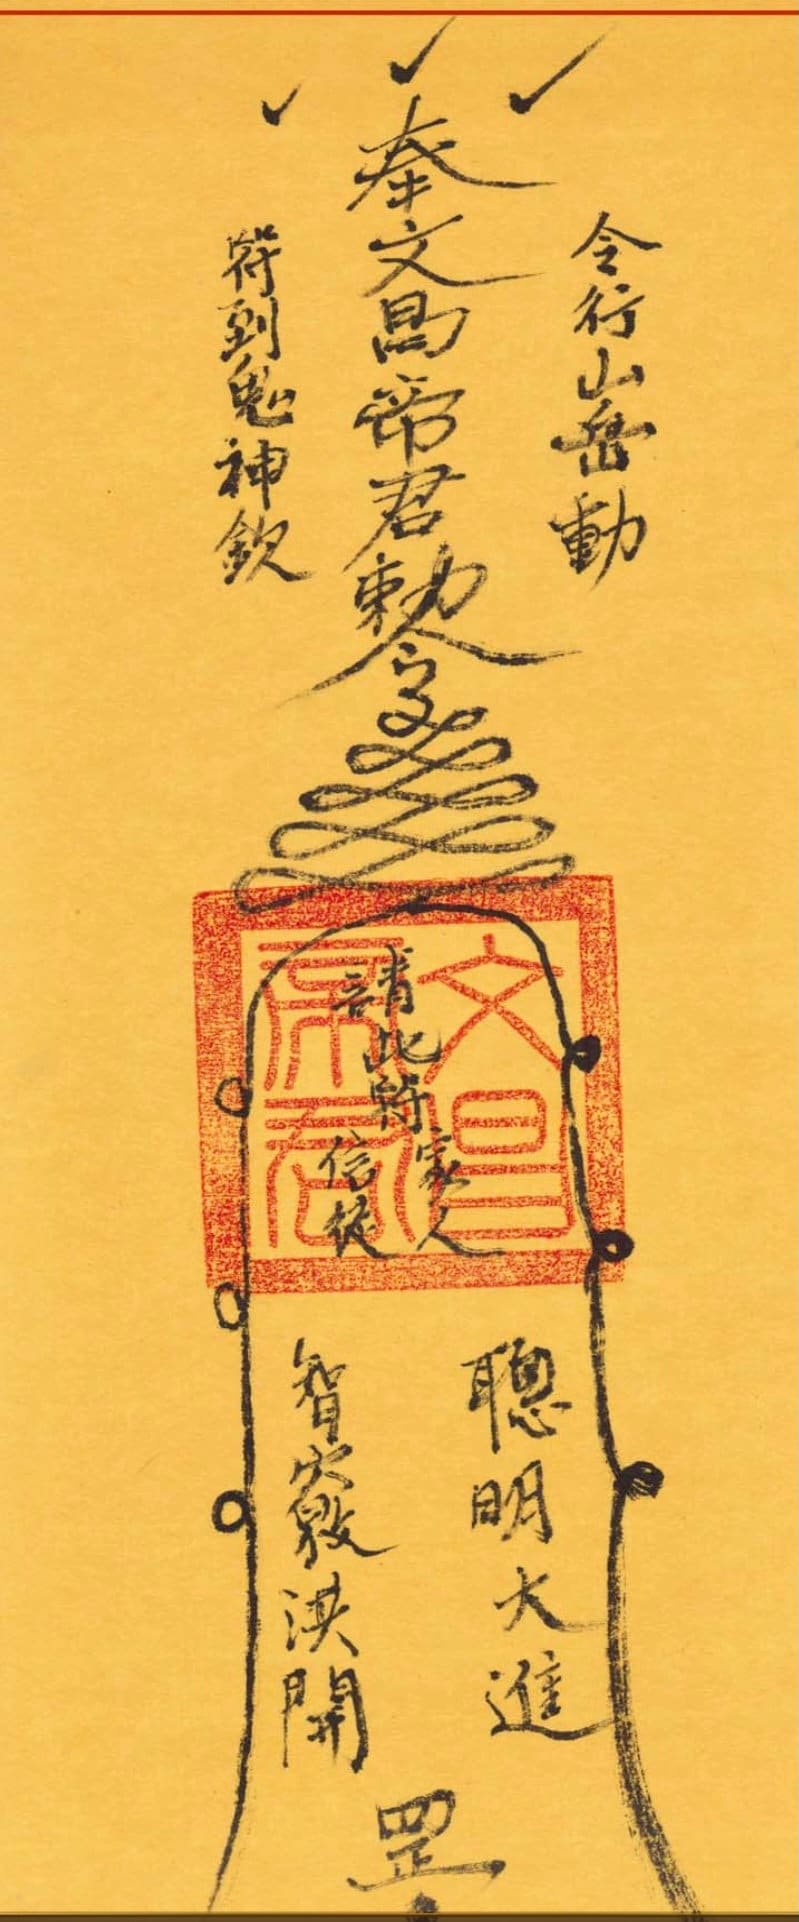 奉文昌帝君勅令
令行山岳動
符到鬼神欽
文昌帝君
請此符
家人
信徒
聰明大進
智竅洪開
罡